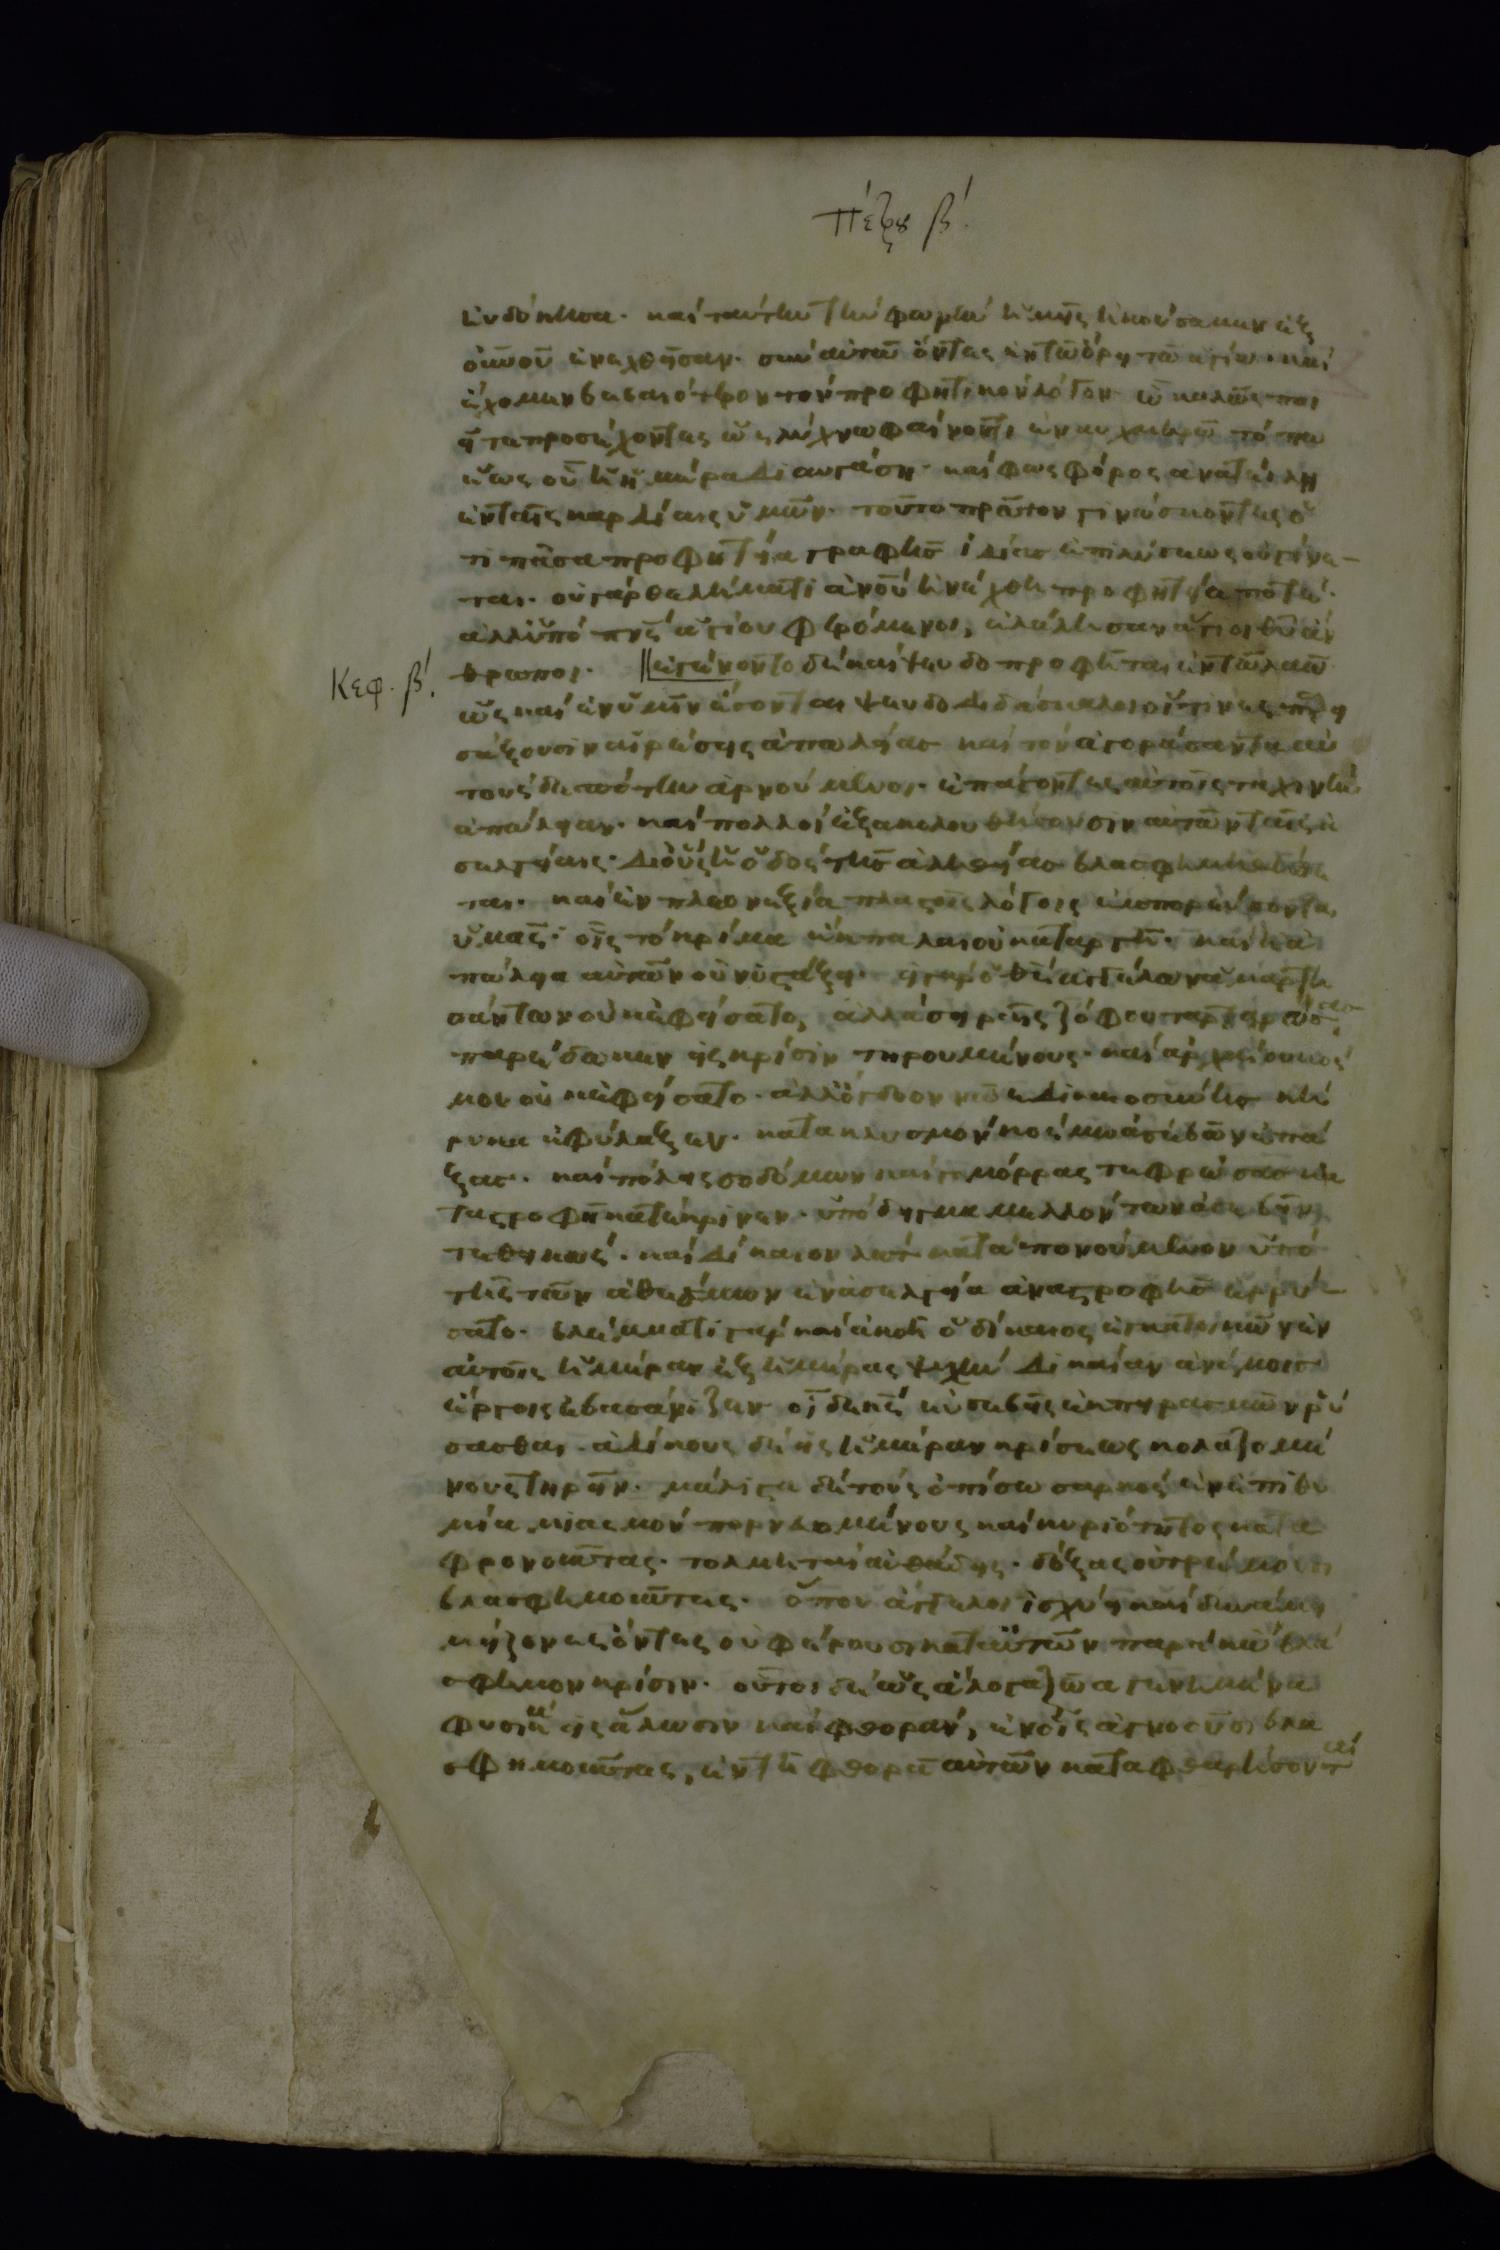 Πέτρου β΄.
ευδόκησα· και ταύτην την φωνην ημεῖς ηκούσαμεν εξ
οὐνοῦ ενεχθῆσαν· συν αυτῶ όντες εν τῶ όρει τῶ αγίω· καί
έχομεν βεβαιότερον τον προφητικον λόγον· ῶ καλῶς ποι
εῖτε προσέχοντες ως λύχνω φαίνοντι εν αυχμηρῶ τόπω
έως οῦ ἡ ημέρα διαυγάση· καί φωσφόρος ανατείλη
εν ταῖς καρδίαις ὑμῶν· τοῦτο πρῶτον γινώσκοντες ὅ
τι πᾶσα προφητεία γραφῆς ἰδίας επιλύσεως ου γίνε
ται· ου γάρ θελήματι ανου ηνέχθη προφητεία ποτέ·
αλλ ὑπό πνς αγίου φερόμενοι, ελάλησαν άγιοι θυ άν
θρωποι. εγένοντο δέ καί ψευδοπροφῆται εν τῶ λαῶ
Κεφ. β΄.
ὡς καί εν ὑμῖν έσονται ψευδοδιδάσκαλοι οἵτινες παρει
σάξουσιν αιρέσεις απωλείας καί τόν αγοράσαντα αυ
τούς δεσπότην αρνούμενοι· επάγοντες αυτοῖς ταχινήν
απώλειαν· καί πολλοί εξακολουθήσουσιν αυτῶν ταῖς α
σελγείαις· δι οὕς ἡ ὁδός τῆς αληθείας βλασφημηθήσε
ται· καί εν πλεονεξία πλαστοῖς λόγοις εμπορεύσονται
ὑμᾶς· οἷς τό κρίμα έκπαλαι ουκ αταργεῖ· καί ἡ α
πώλεια αυτῶν ου νυστάξει· ει γάρ ὁ θς αγγέλων ἁμαρτη
σάντων ουκ εφείσατο, αλλά σειραῖς ζόφου ταρταρώσας
παρέδωκεν εις κρίσιν τηρουμένους· καί αρχαίου κόσ
μου ουκ εφείσατο· αλλ όγδοον νῶε δικαιοσύνης κή
ρυκα εφύλαξεν· κατακλυσμόν κόσμω ασεβῶν επά
ξας· καί πόλεις σοδόμων καί γομόρρας τεφρώσας κα
ταστροφῆ κατέκρινεν· ὑπόδειγμα μελλόντων ασεβεῖν
τεθεικώς· καί δίκαιον λώτ καταπονούμενον ὑπό
τῆς τῶν αθέσμων εν ασελγεία αναστροφῆς ερρύ
σατο· βλέμματι γάρ καί ακοῆ ὁ δίκαιος εγκατοικῶν εν
αυτοῖς ἡμέραν εξ ἡμέρας ψυχήν δικαίαν ανόμοις
έργοις εβασάνιζεν· οἶδε κς ευσεβεῖς εκ πειρασμῶν ρύ
εσθαι· αδίκους δέ εις ἡμέραν κρίσεως κολαζομέ
νους τηρεῖν· μάλιστα δέ τούς οπίσω σαρκός εν επιθυ
μία μιασμοῦ πορευομένους καί κυριότητος κατα
φρονοῦντας· τολμηταί αυθάδεις· δόξας ου τρέμουσι
βλασφημοῦντες· ὅπου άγγελοι ἰσχύει καί δυνάμει
μείζονες όντες ου φέρουσι κατ αυτῶν παρά κω βλά
σφημον κρίσιν· οὗτοι δέ ὡς άλογα ζῶα γεγενημένα
φυσικά εις ἅλωσιν καί φθοράν, εν οἷς αγνοοῦσι βλα
σφημοῦντες, εν τῆ φθορᾶ αυτῶν καταφθαρήσονται